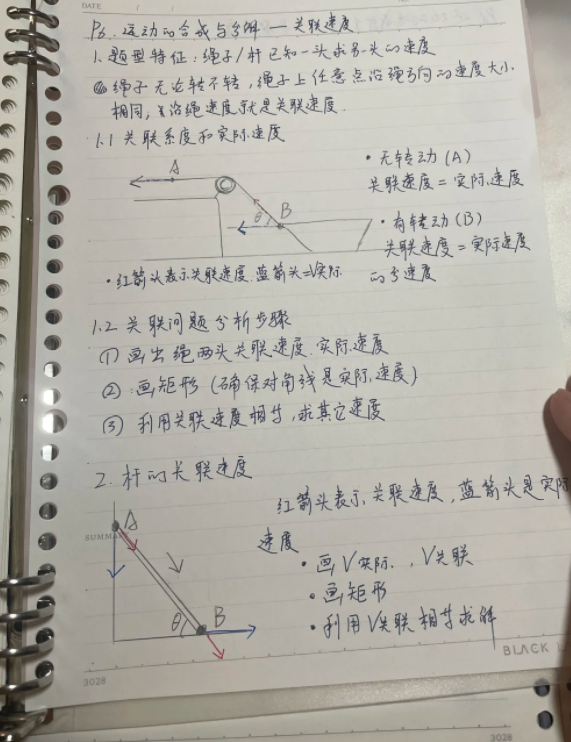 DATE
P5. 运动的合成与分解 — 关联速度
1. 题型特征：绳子/杆已知一头求另一头的速度
绳子无论转不转，绳子上任意点沿绳方向的速度大小
相同，沿绳速度就是关联速度.
1.1 关联系度和实际速度
A
θ
B
• 无转动 (A)
关联速度 = 实际速度
• 有转动 (B)
关联速度 = 实际速度
的分速度
• 红箭头表示关联速度. 蓝箭头=V实际
1.2 关联问题分析步骤
① 画出绳两头关联速度. 实际速度
② 画矩形 (确保对角线是实际速度)
③ 利用关联速度相等, 求其它速度
2. 杆的关联速度
A
SUMMA
θ
B
红箭头表示关联速度, 蓝箭头是实际
速度
• 画V实际, V关联
• 画矩形
• 利用V关联相等求解
BLACK
3028
3028